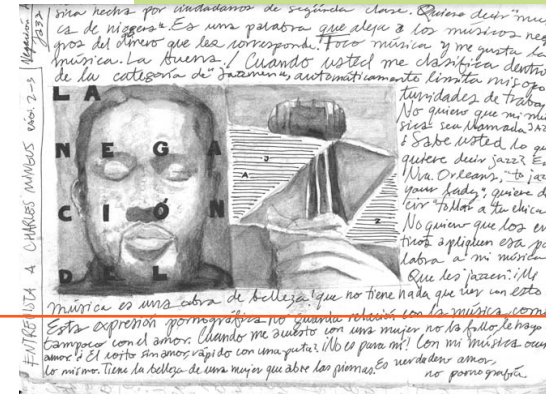 sica hecha por ciudadanos de segunda clase. Quiere decir "mú
ca de niggers". Es una palabra que aleja a los músicos neg
gros del dinero que les corresponde. Toco música y me gusta la
música. La buena! Cuando usted me clasifica dentro
de la categoría de "jazzmen", automáticamente limita mis opo
tunidades de trabaj
No quiero que mi mú
sica sea llamada jaz
¿Sabe usted lo que
quiere decir jazz? En
Nva Orleans, "to jaz
your lady", quiere de
cir "follar a tu chica
No quiero que los cr
ticos apliquen esa pa
labra a mi música
Que les jazzen! ¡Mi
música es una obra de belleza! que no tiene nada que ver con esto
Esta expresión pornográfica no guarda relación con la música, como
tampoco con el amor. Cuando me acuesto con una mujer no la follo, le hago
amor! ¿El coito sin amor, rápido con una puta? ¡No es para mí! Con mi música ocur
lo mismo. Tiene la belleza de una mujer que abre las piernas. Es verdadero amor,
no pornografía
LA
NEGA
CIÓN
DEL
J
A
Z
ENTREVISTA A CHARLES MINGUS pág. 2-3
Negación
237